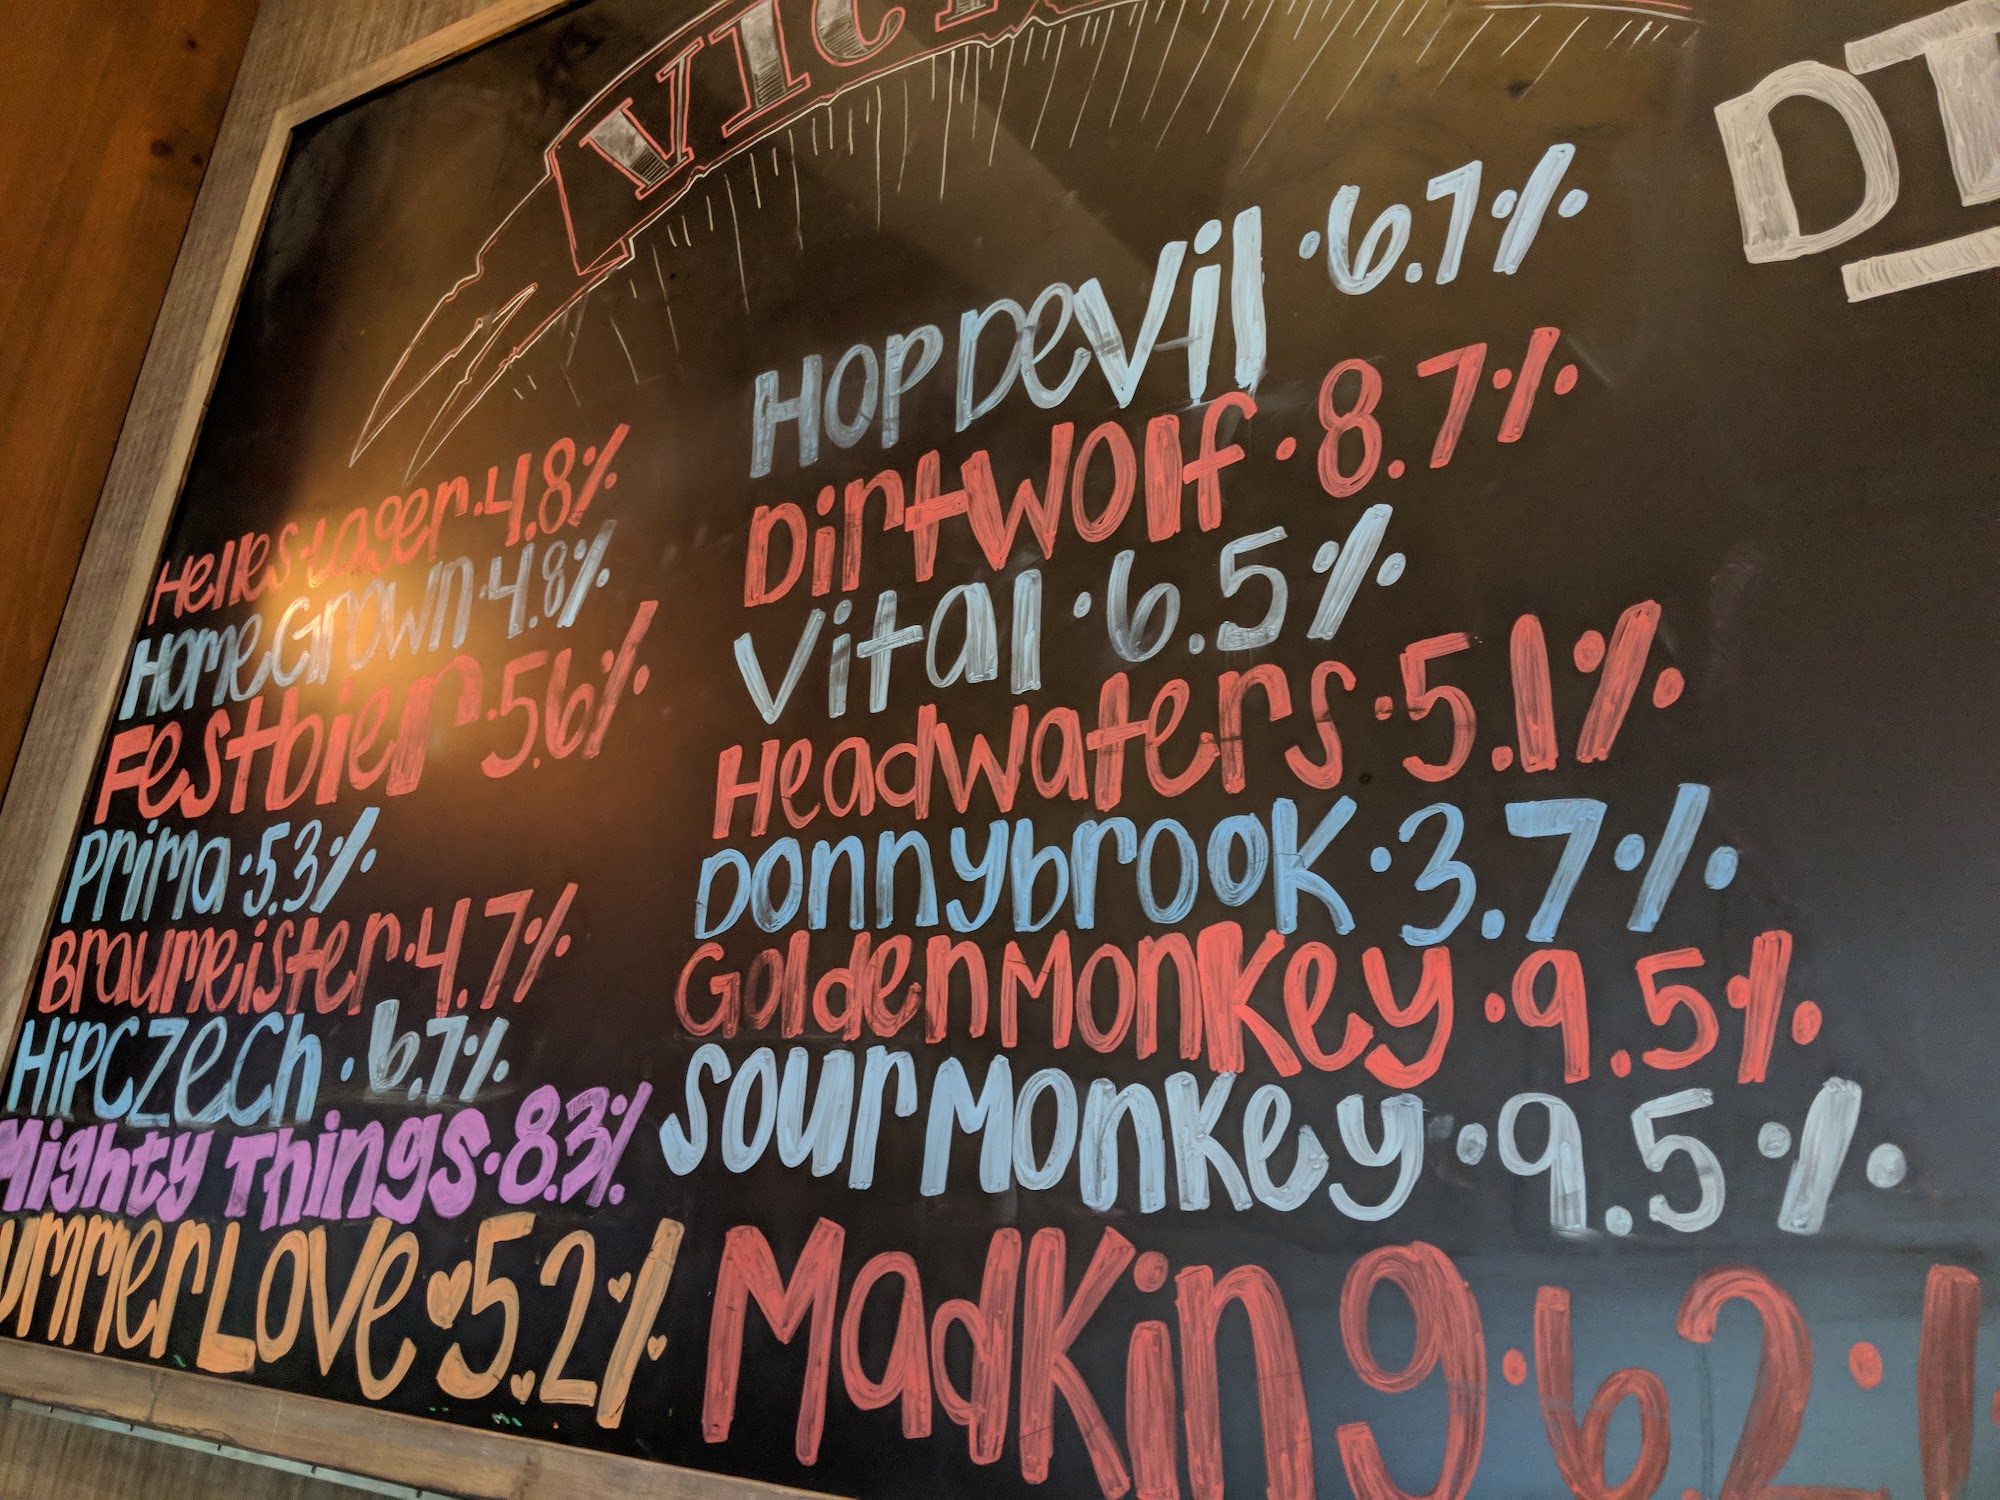 VICT
DI
Helles·Lager·4.8%
HomeGrown·4.8%
Festbier·5.6%
Prima·5.3%
Braumeister·4.7%
HipCzech·6.7%
Mighty Things·8.3%
ummerLove·5.2%
HopDevil·6.7%
DirtWolf·8.7%
Vital·6.5%
Headwaters·5.1%
Donnybrook·3.7%
GoldenMonkey·9.5%
SourMonkey·9.5%
MadKing·6.2